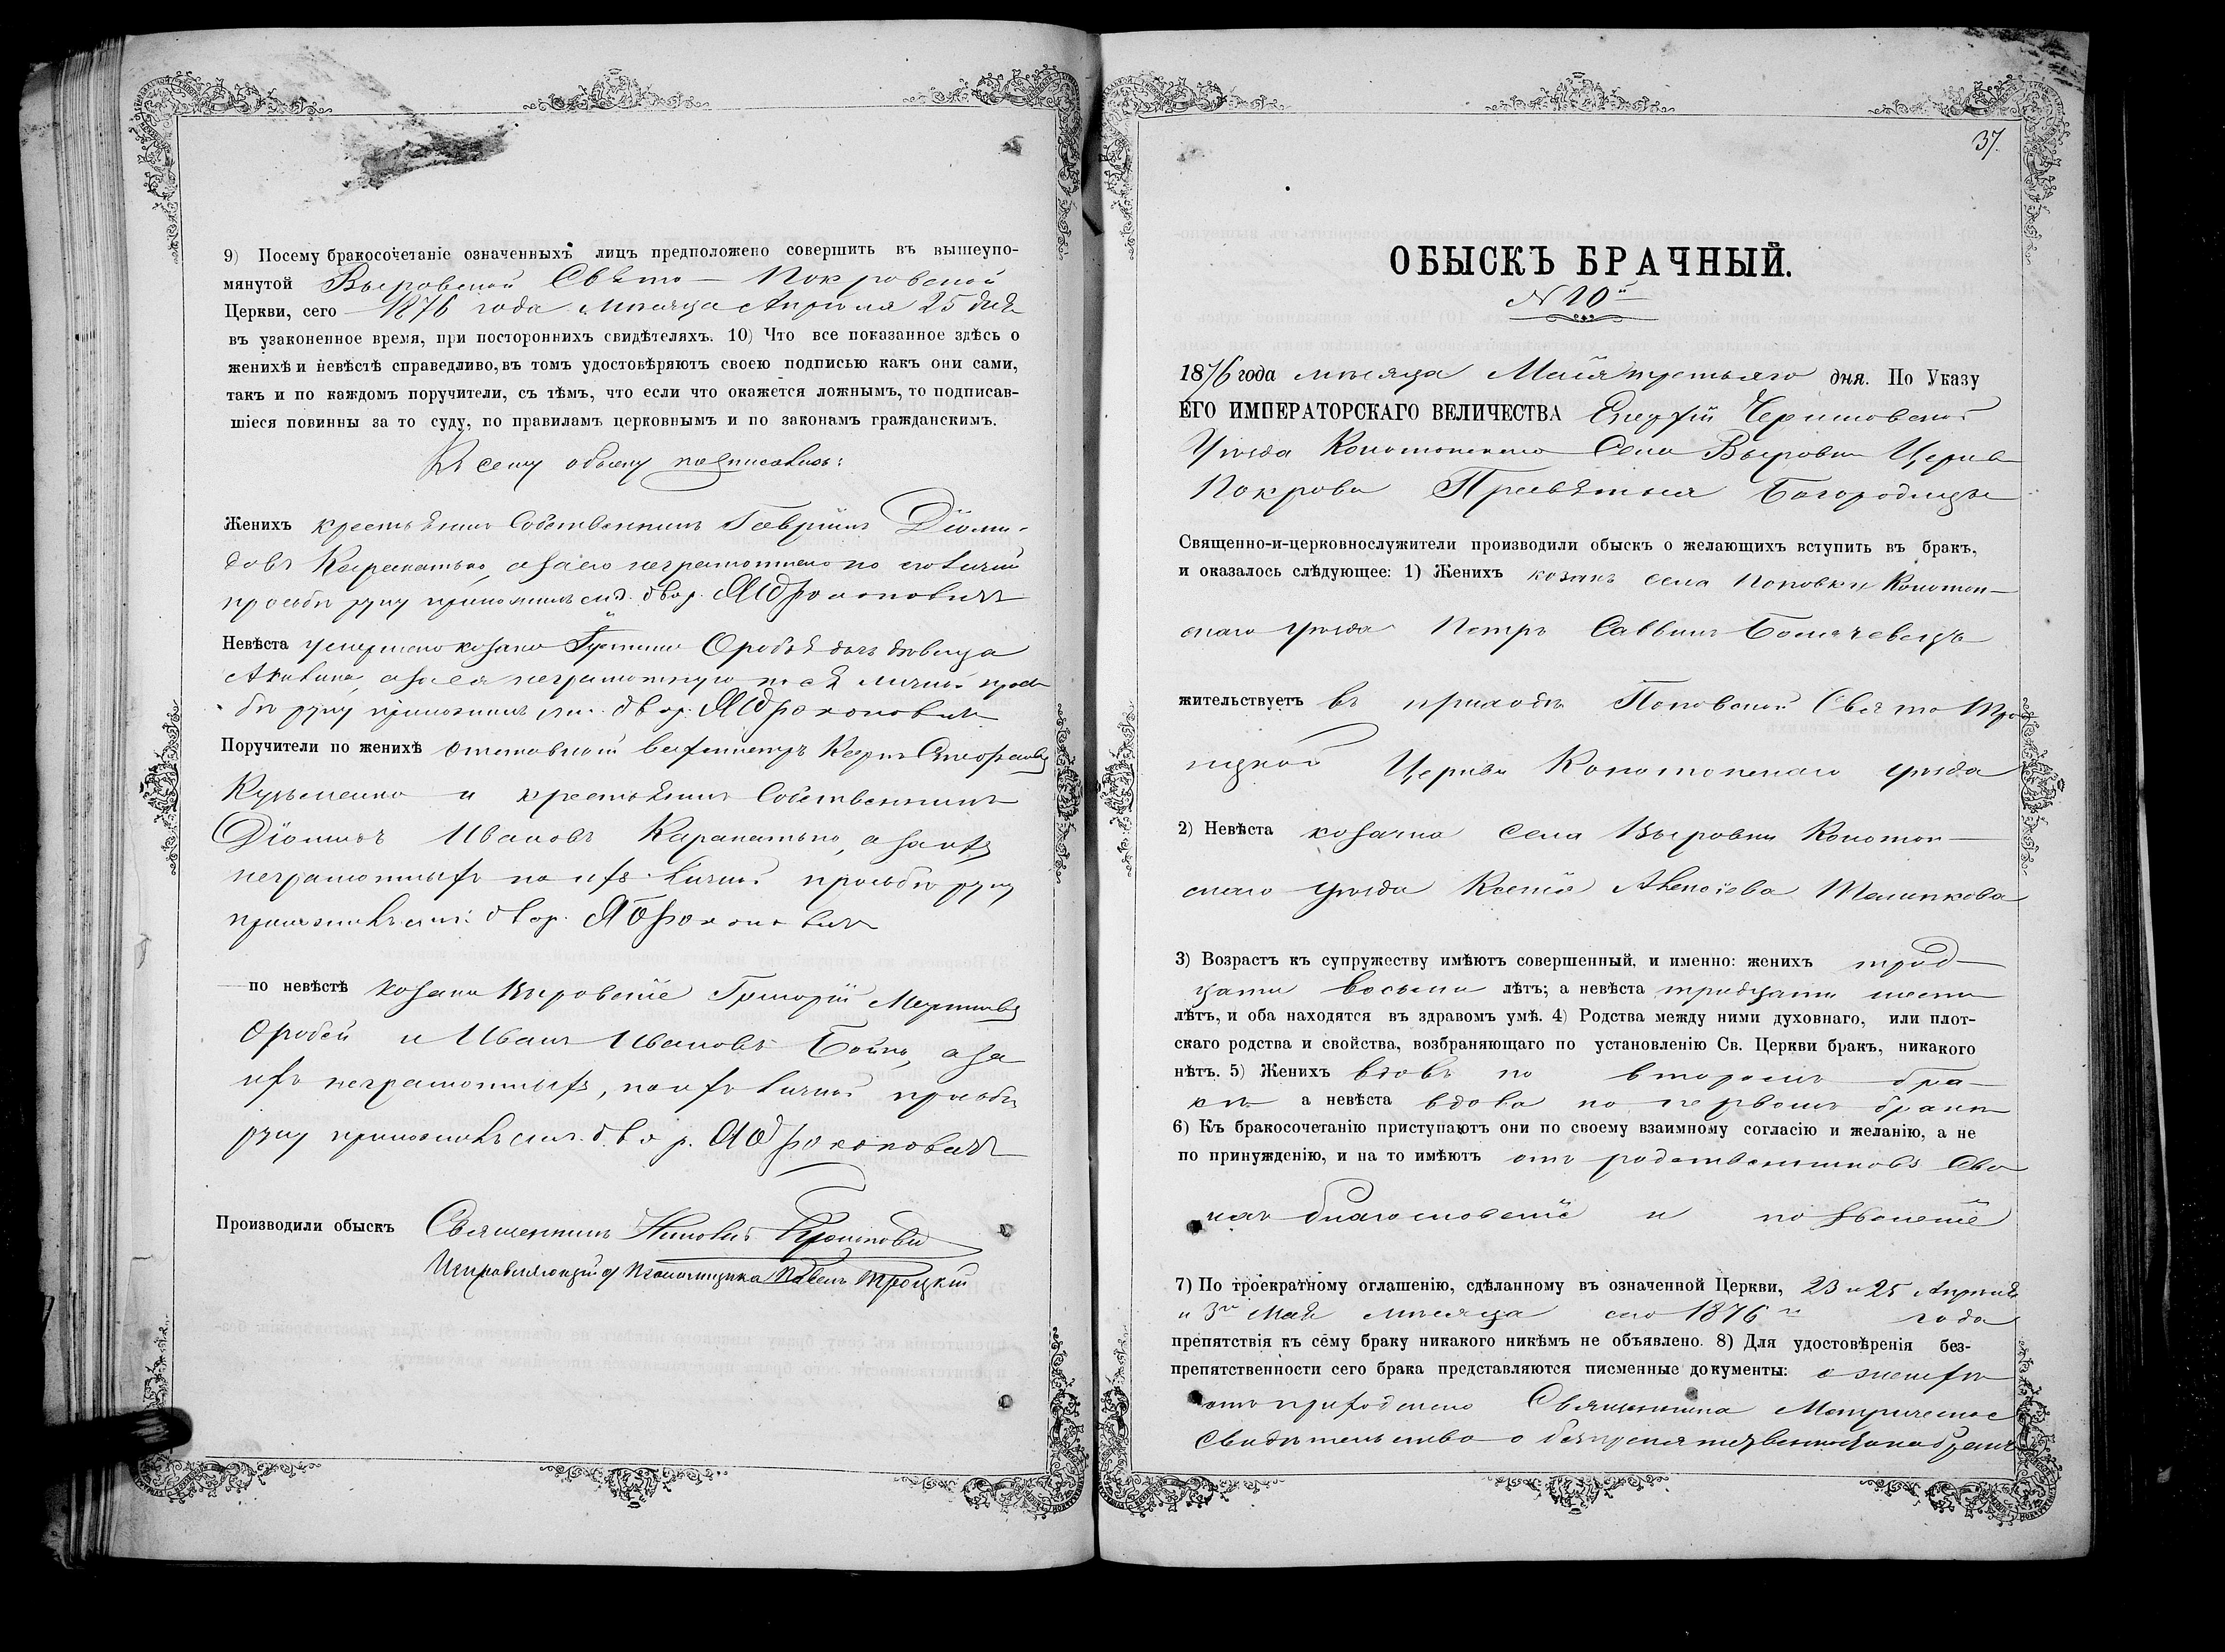 9) Посему бракосочетаніе означенныхъ лицъ предположено совершить въ вышеупо-
мянутой Выровской Свято-Покровской
Церкви, сего 1876 года мѣсяца Апрѣля 25 дня
въ узаконенное время, при постороннихъ свидѣтеляхъ. 10) Что все показанное здѣсь о
женихѣ и невѣстѣ справедливо, въ томъ удостовѣряютъ своею подписью какъ они сами,
такъ и по каждомъ поручители, съ тѣмъ, что если что окажется ложнымъ, то подписав-
шіеся повинны за то суду, по правиламъ церковнымъ и по законамъ гражданскимъ.
Къ сему обыску подписались:
Женихъ крестьянинъ Собственникъ Гавріилъ Діоми-
довъ, а за его неграмотнаго по его личной
просьбѣ руку приложилъ
Невѣста козака Оробѧ дочь дѣвица
Акилина, а за ея неграмотную по ея личной прось-
бѣ руку приложилъ
Поручители по женихѣ отставный Карпъ
Кузьменко и крестьянинъ Собственникъ
Діомидъ Ивановъ, а за ихъ
неграмотныхъ по ихъ личной просьбѣ руку
приложилъ
по невѣстѣ козаки Выровскіе Григорій Мартиновъ
Оробей и Иванъ Ивановъ Бойко, а за
ихъ неграмотныхъ, по ихъ личной просьбѣ
руку приложилъ
Производили обыскъ Священникъ
Исправляющій д Псаломщика Павелъ Троцкій
37.
ОБЫСКЪ БРАЧНЫЙ.
N 10й
1876 года мѣсяца Маія третьяго дня. По Указу
ЕГО ИМПЕРАТОРСКАГО ВЕЛИЧЕСТВА Епархіи Черниговской
Уѣзда Конотопскаго Села Выровки Церкви
Покрова Пресвятыя Богородицы
Священно-и-церковнослужители производили обыскъ о желающихъ вступить въ бракъ,
и оказалось слѣдующее: 1) Женихъ козакъ села Поповки Конотоп-
скаго уѣзда Петръ Саввинъ
жительствуетъ въ приходѣ Поповской Свято Тро
ицкой Церкви Конотопскаго уѣзда
2) Невѣста козачка села Выровки Конотоп-
скаго уѣзда Ксенія Алексіева
3) Возрастъ къ супружеству имѣютъ совершенный, и именно: женихъ трид-
цати восьми лѣтъ; а невѣста тридцати шести
лѣтъ, и оба находятся въ здравомъ умѣ. 4) Родства между ними духовнаго, или плот-
скаго родства и свойства, возбраняющаго по установленію Св. Церкви бракъ, никакого
нѣтъ. 5) Женихъ вдовъ по второмъ бра-
кѣ а невѣста вдова по первомъ бракѣ
6) Къ бракосочетанію приступаютъ они по своему взаимному согласію и желанію, а не
по принужденію, и на то имѣютъ отъ родственниковъ сво
ихъ благословеніе и позволеніе
7) По троекратному оглашенію, сдѣланному въ означенной Церкви, 23 и 25 Апрѣля
и 3го Мая мѣсяца сего 1876го года
препятствія къ сему браку никакого никѣмъ не объявлено. 8) Для удостовѣренія без-
препятственности сего брака представляются писменные документы: о женихѣ
отъ приходскаго Священника Метрическое
Свидѣтельство о